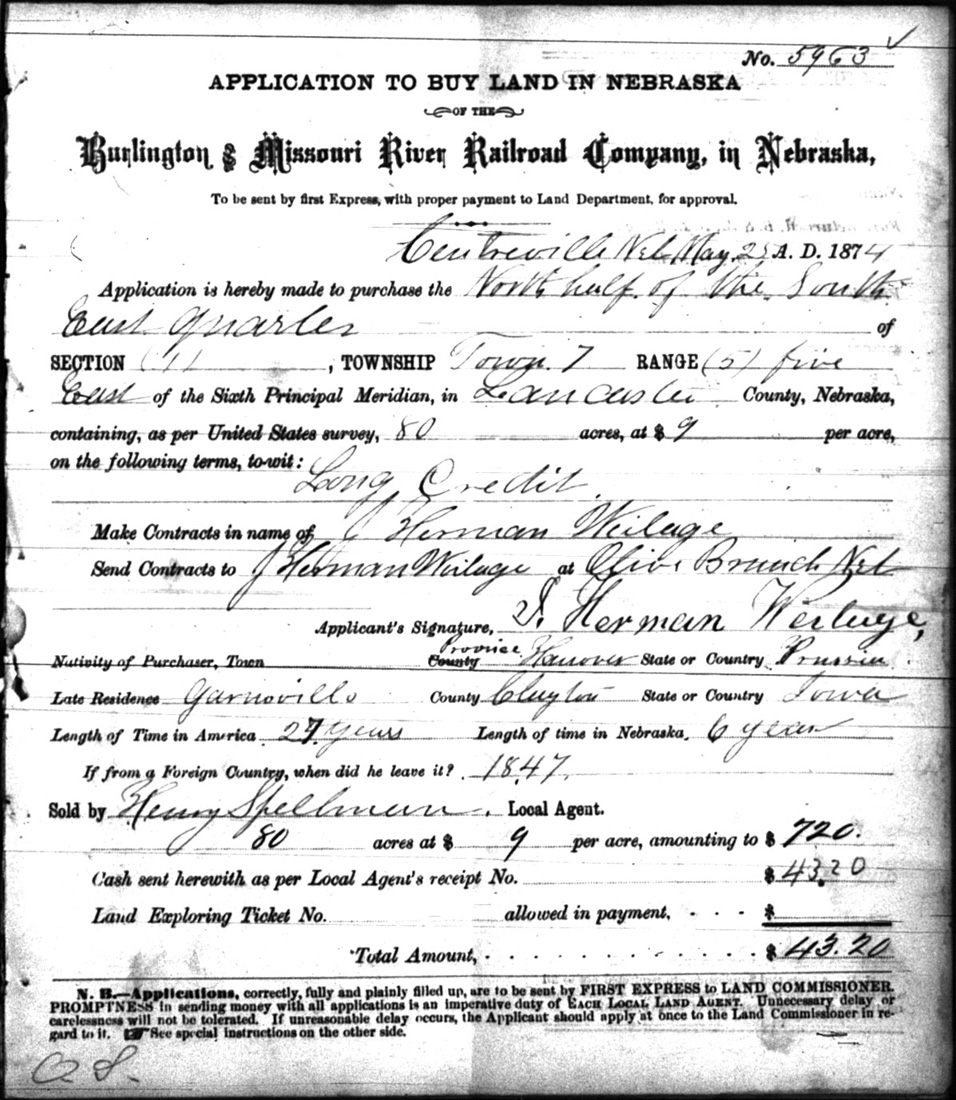 No. 5963
APPLICATION TO BUY LAND IN NEBRASKA
OF THE
Burlington & Missouri River Railroad Company, in Nebraska,
To be sent by first Express, with proper payment to Land Department, for approval.
Centreville Neb May 25 A. D. 1874
Application is hereby made to purchase the North half of the South
East Quarter of
SECTION (11) , TOWNSHIP Town 7 RANGE (5) five
East of the Sixth Principal Meridian, in Lancaster County, Nebraska,
containing, as per United States survey, 80 acres, at $ 9 per acre,
on the following terms, to-wit:
Long Credit
Make Contracts in name of J Herman Weiluge
Send Contracts to J Herman Weiluge at Olive Branch Neb
Applicant's Signature, J. Herman Weiluge,
Nativity of Purchaser, Town County Province Hanover State or Country Prussia
Late Residence Garnoville County Clayton State or Country Iowa
Length of Time in America 27 years Length of time in Nebraska, 6 year
If from a Foreign Country, when did he leave it? 1847.
Sold by Henry Spellman, Local Agent.
80 acres at $ 9 per acre, amounting to $ 720.
Cash sent herewith as per Local Agent's receipt No. $ 43.20
Land Exploring Ticket No. allowed in payment, $
Total Amount, $ 43.20
N. B.—Applications, correctly, fully and plainly filled up, are to be sent by FIRST EXPRESS to LAND COMMISSIONER.
PROMPTNESS in sending money with all applications is an imperative duty of EACH LOCAL LAND AGENT. Unnecessary delay or
carelessness will not be tolerated. If unreasonable delay occurs, the Applicant should apply at once to the Land Commissioner in re-
gard to it. ☞ See special instructions on the other side.